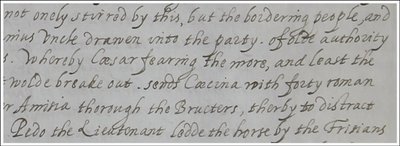 not onely stirred by this, but the bordering people, and
mius Vncle drawen into the party. of olde authority
s. Whereby Cæsar fearing the more, and least the
wolde breake out. sends Cæcina with forty roman
r Amisia thorough the Bructers, therby to distract
Pedo the Lieutenant ledde the horse by the Frisians